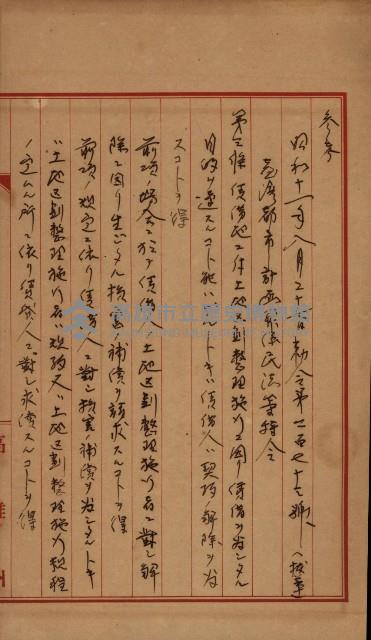 参考
昭和十一年八月二十七日勅令第二百七十三號(抜萃)
臺灣都市計画関係民法等特令
第三條 賃借地ニ付土地区劃整理施行ニ因リ賃借ヲ為シタル
目的ヲ達スルコト能ハザルトキハ賃借人ハ契約ノ解除ヲ為
スコトヲ得
前項ノ場合ニ於テ賃借人ハ土地区劃整理施行者ニ對シ解
除ニ因リ生ジタル損害ノ補償ヲ請求スルコトヲ得
前項ノ規定ニ依リ賃借人ニ對シ損害ノ補償ヲ為シタルトキ
ハ土地区劃整理施行者ハ規約又ハ土地区劃整理施行規程
ノ定ムル所ニ依リ賃貸人ニ對シ求償スルコトヲ得
高雄州
高雄市立歷史博物館